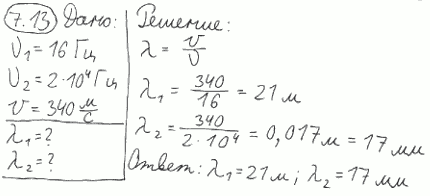 7.13 Дано:
υ₁ = 16 Гц
υ₂ = 2·10⁴ Гц
v = 340 м/с
λ₁ = ?
λ₂ = ?
Решение:
λ = v/υ
λ₁ = 340/16 = 21 м
λ₂ = 340/(2·10⁴) = 0,017 м = 17 мм
Ответ: λ₁ = 21 м; λ₂ = 17 мм